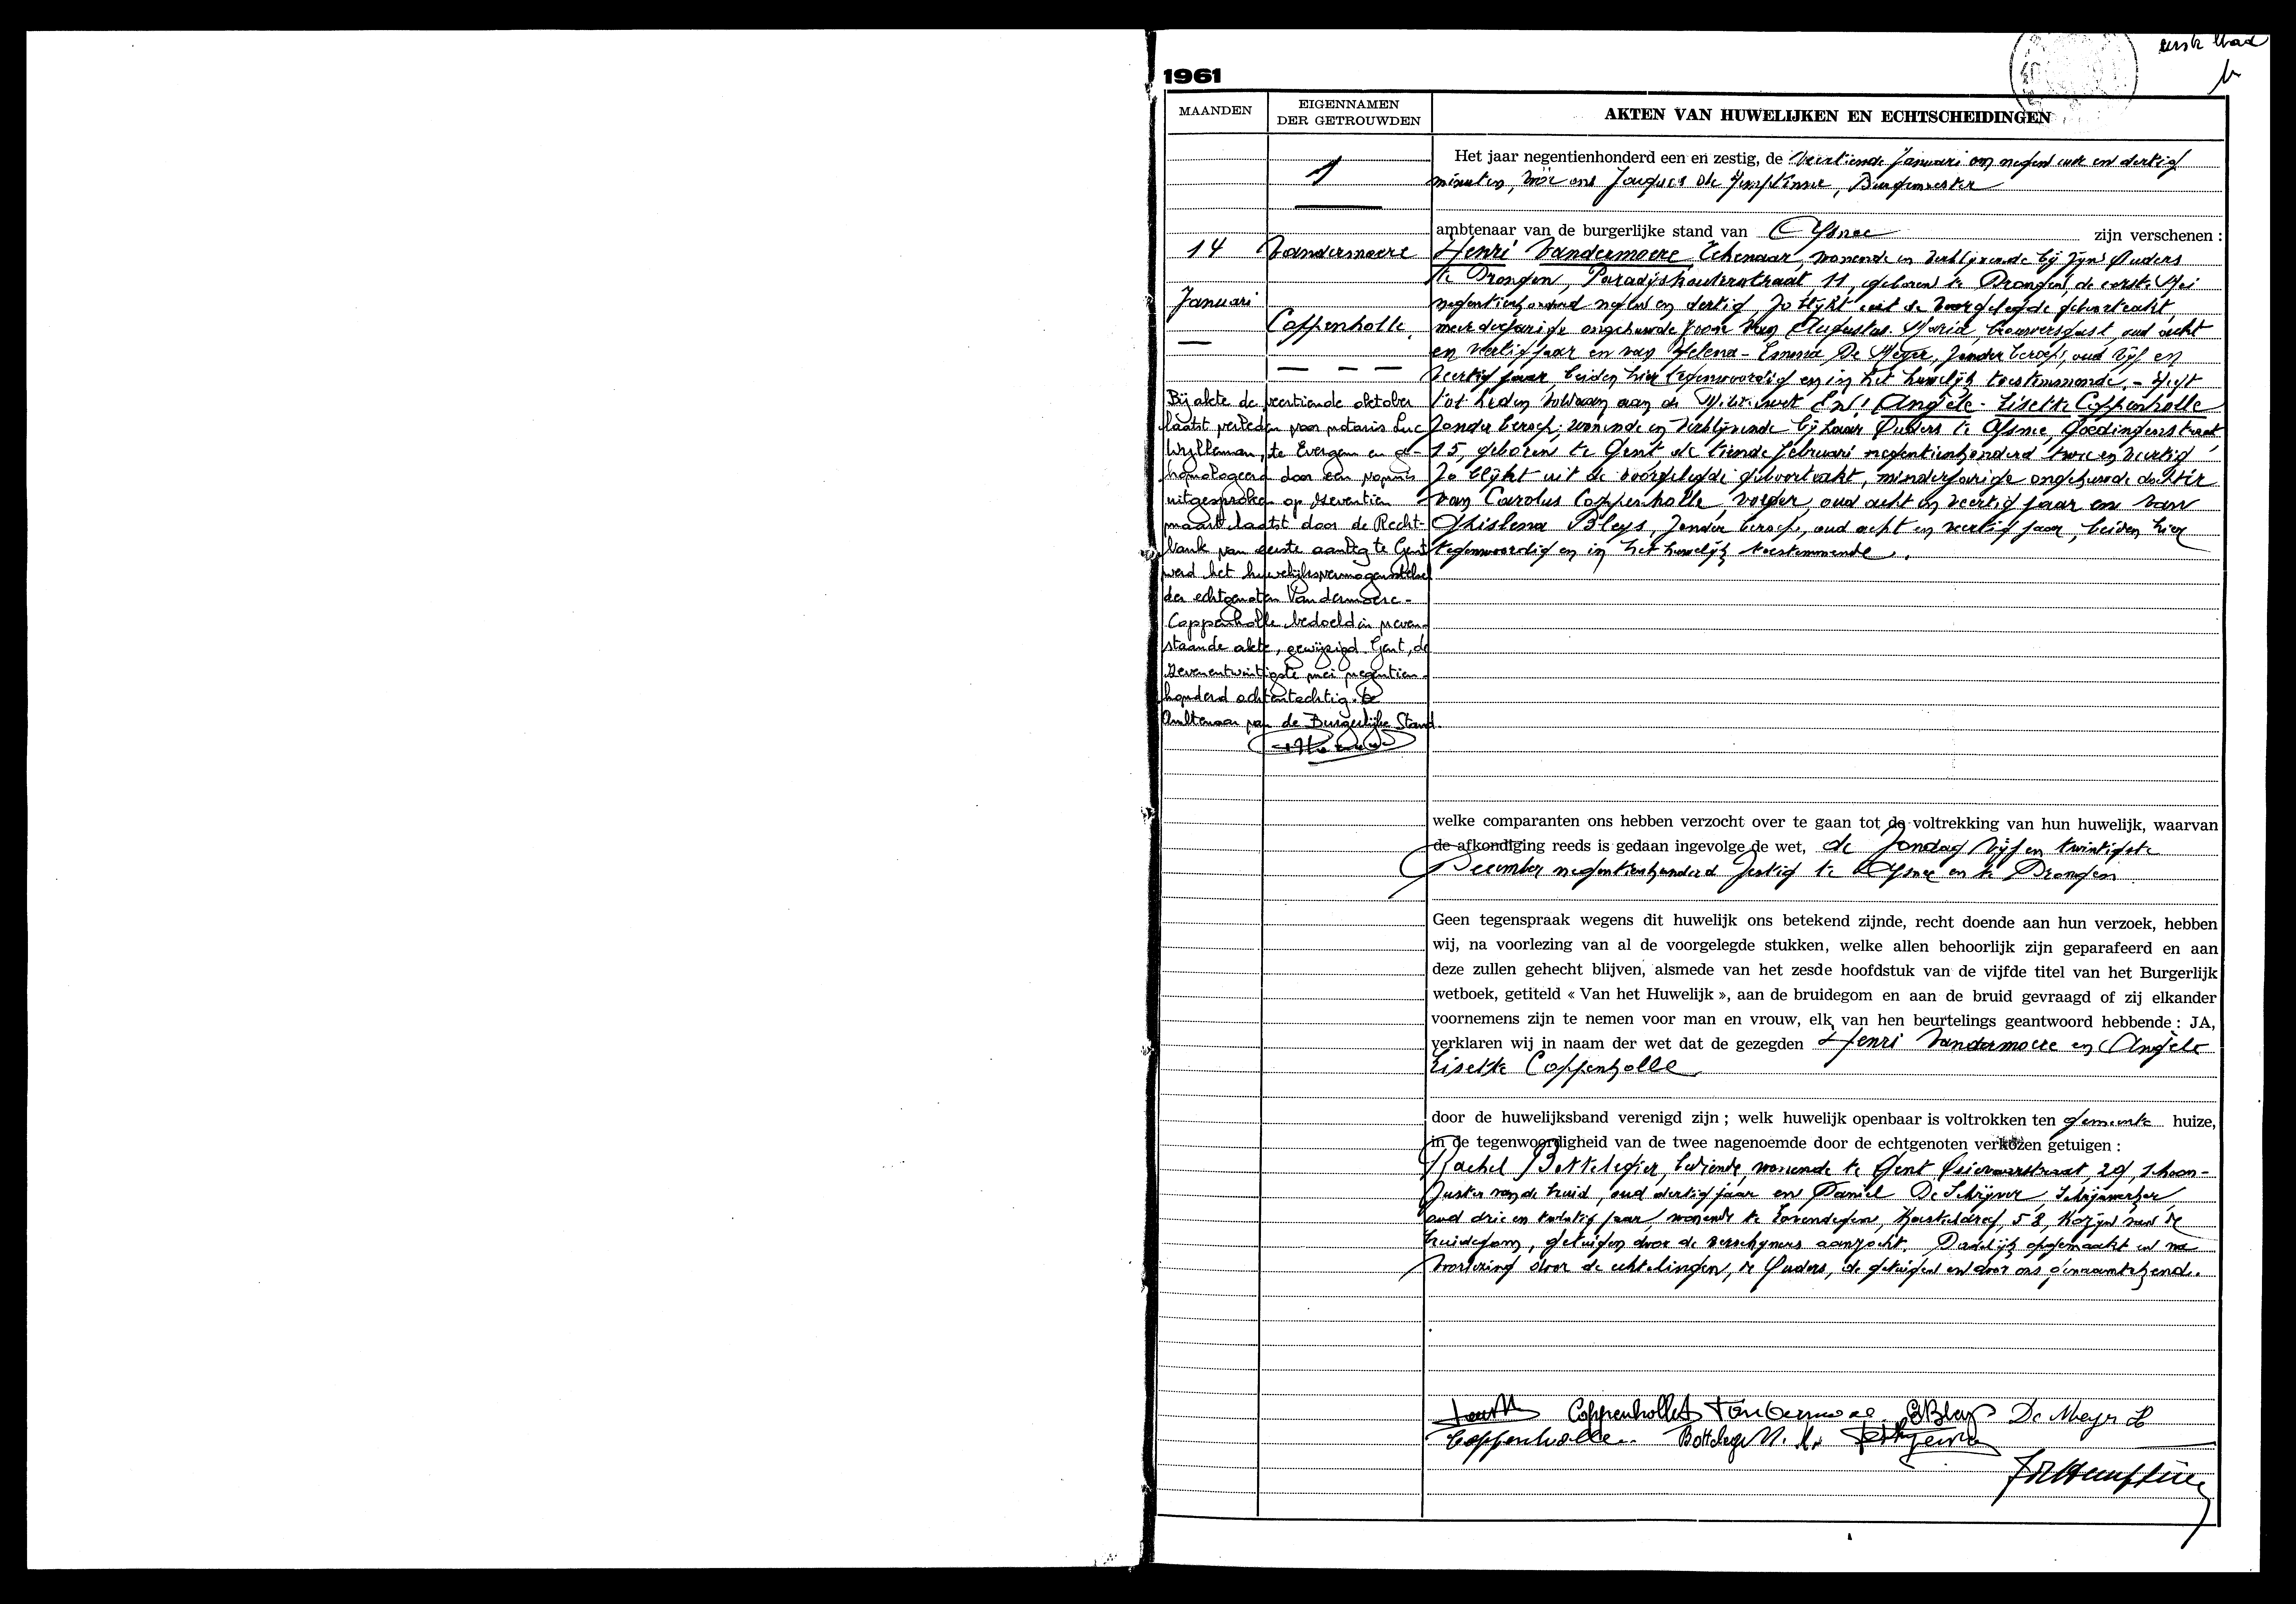 eerste blad
1
1961
MAANDEN
EIGENNAMEN
DER GETROUWDEN
AKTEN VAN HUWELIJKEN EN ECHTSCHEIDINGEN
1
14
Januari
Vandermoere
Coppenholle
Bij akte de veertiende oktober
laatst verleden voor notaris Luc
te Evergem en ge-
homologeerd door een vonnis
uitgesproken op zeventien
maart laatst door de Recht-
bank van eerste aanleg te Gent
werd het huwelijksvermogenstelsel
der echtgenoten Vandermoere-
Coppenholle bedoeld in neven-
staande akte, gewijzigd. Gent, de
zevenentwintigste mei negentien-
honderd achtentachtig. De
Ambtenaar van de Burgerlijke Stand.
Het jaar negentienhonderd een en zestig, de veertiende Januari om negen uur en dertig
minuten, vóór ons Jacques de Hemptinne, Burgemeester
ambtenaar van de burgerlijke stand van Afsnee zijn verschenen :
Henri Vandermoere Tekenaar, wonende en verblijvende bij zijne Ouders
te Drongen, Paradijskouterstraat 11, geboren te Drongen, de eerste Mei
negentienhonderd negen en dertig, zo blijkt uit de voorgelegde geboorteakt,
meerderjarige ongehuwde zoon van Augustus-Maria, brouwersgast, oud acht
en veertig jaar en van Helena-Emma De Meyer, zonder beroep, oud vijf en
veertig jaar, beiden hier tegenwoordig en in het huwelijk toestemmende. - Heeft
tot heden voldaan aan de Militiewet En: Angèle-Lisette Coppenholle
zonder beroep, wonende en verblijvende bij haar Ouders te Afsnee, Goedingenstraat
15, geboren te Gent de tiende februari negentienhonderd twee en veertig
zo blijkt uit de voorgelegde geboorteakt, minderjarige ongehuwde dochter
van Carolus Coppenholle, voeger, oud acht en veertig jaar en van
Ghislena Bleys, zonder beroep, oud acht en veertig jaar, beiden hier
tegenwoordig en in het huwelijk toestemmende.
welke comparanten ons hebben verzocht over te gaan tot de voltrekking van hun huwelijk, waarvan
de afkondiging reeds is gedaan ingevolge de wet, de Zondag vijf en twintigste
December negentienhonderd zestig te Afsnee en te Drongen
Geen tegenspraak wegens dit huwelijk ons betekend zijnde, recht doende aan hun verzoek, hebben
wij, na voorlezing van al de voorgelegde stukken, welke allen behoorlijk zijn geparafeerd en aan
deze zullen gehecht blijven, alsmede van het zesde hoofdstuk van de vijfde titel van het Burgerlijk
wetboek, getiteld « Van het Huwelijk », aan de bruidegom en aan de bruid gevraagd of zij elkander
voornemens zijn te nemen voor man en vrouw, elk van hen beurtelings geantwoord hebbende : JA,
verklaren wij in naam der wet dat de gezegden Henri Vandermoere en Angèle
Lisette Coppenholle
door de huwelijksband verenigd zijn ; welk huwelijk openbaar is voltrokken ten gemeente huize,
in de tegenwoordigheid van de twee nagenoemde door de echtgenoten verkozen getuigen :
Rachel Bottelgier, bediende, wonende te Gent Ooievaarstraat, 29, schoon-
zuster van de bruid, oud dertig jaar en Daniel De Schrijver, Schrijnwerker
oud drie en twintig jaar, wonende te Lovendegem, Kasteeldreef, 58, Kozijn van de
bruidegom, getuigen door de verschijners aanzocht. Dadelijk opgemaakt en na
voorlezing door de echtelingen, de Ouders, de getuigen en door ons ondertekend.
Coppenholle A Vandermoere G Bleys De Meyer H
Coppenholle
J de Hemptinne